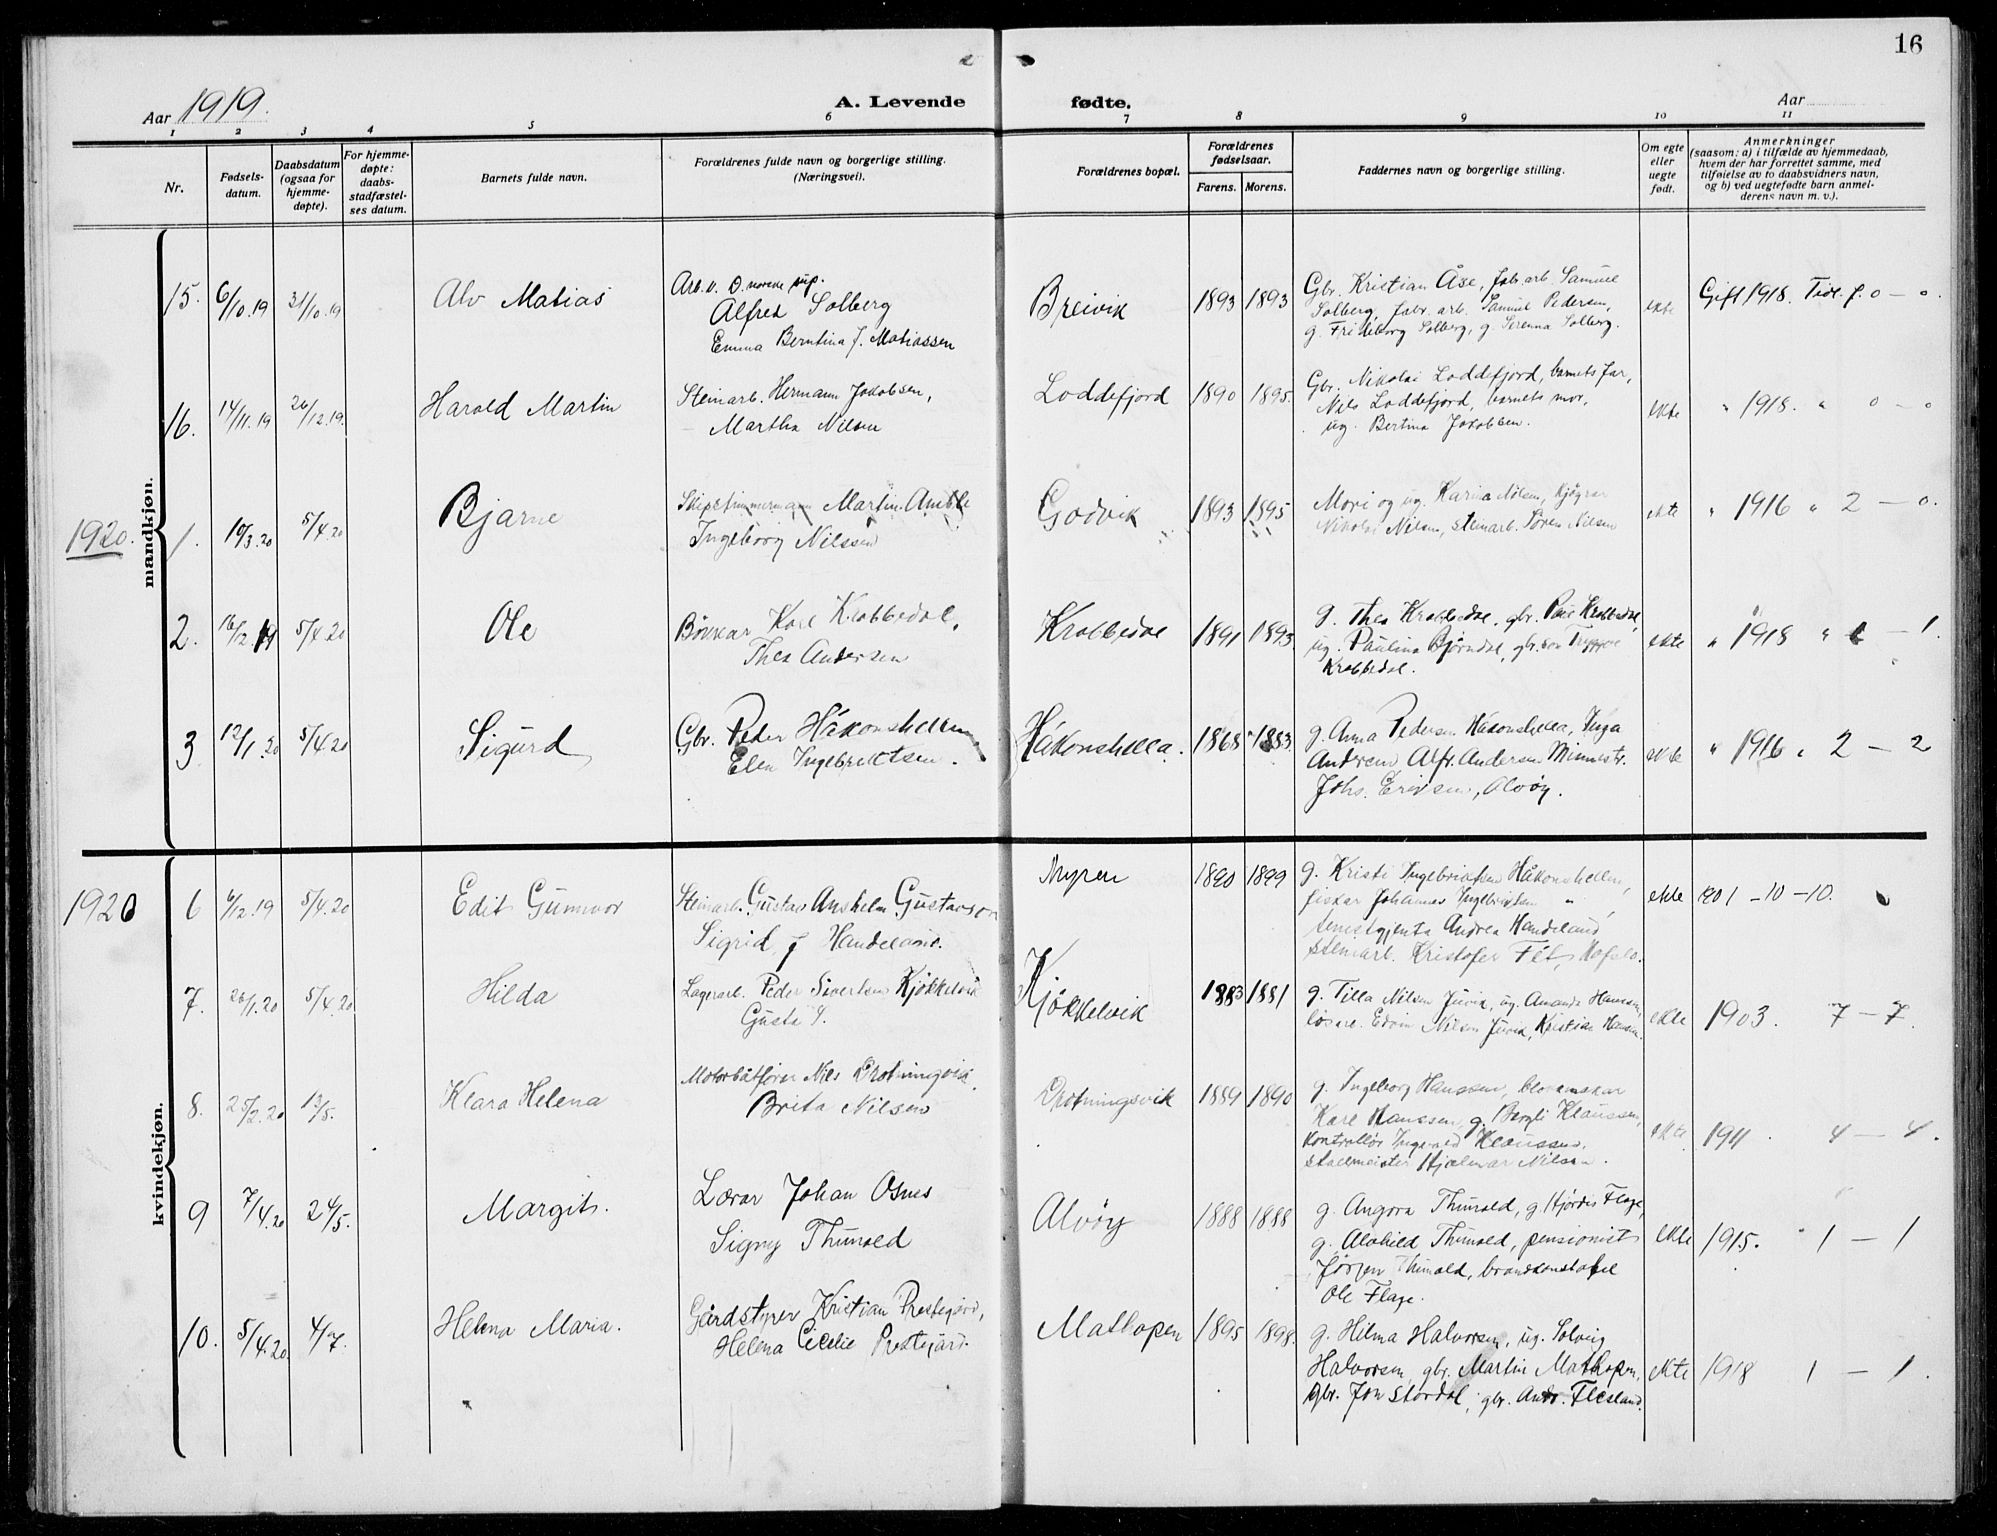 16
Aar 1919.
A. Levende fødte.
Aar
1 2 3 4 5 6 7 8 9 10 11
Nr.
Fødsels-
datum.
Daabsdatum
(ogsaa for
hjemme-
døpte).
For hjemme-
døpte:
daabs-
stadfæstel-
ses datum.
Barnets fulde navn.
Forældrenes fulde navn og borgerlige stilling.
(Næringsvei).
Forældrenes bopæl.
Forældrenes
fødselsaar.
Farens. Morens.
Faddernes navn og borgerlige stilling.
Om egte
eller
uegte
født.
Anmerkninger
(saasom: a) i tilfælde av hjemmedaab,
hvem der har forrettet samme, med
tilføielse av to daabsvidners navn,
og b) ved uegtefødte barn anmel-
derens navn m. v.).
mandkjøn.
15. 6/10.19 31/10.19 Alv Matias
Arb. v. D. norske
Alfred Solberg
Emma Berntina f. Matiassen
Breivik 1893 1893
Gbr. Kristian Åse, fabr. arb. Samuel
Solberg, fabr. arb. Samuel Pedersen,
g. Frideborg Solberg, g. Serenna Solberg.
ekte Gift 1918. Tidl. f. 0 – 0.
16. 14/11.19 26/12.19. Harald Martin
Steinarb. Hermann Jakobsen,
Martha Nilsen
Loddefjord 1890 1895.
Gbr. Nikolai Loddefjord, barnets far,
Nils Loddefjord, barnets mor,
ug. Bertina Jakobsen.
ekte " 1918. " 0 – 0
1920. 1. 10/3.20 5/4.20 Bjarne
Skipstimmermann Martin Amble
Ingeborg Nilssen
Godvik 1893 1895
Mori og ug. Karina Nilsen,
Nikolai Nilsen, steinarb. Søren Nilsen
ekte " 1916 " 2 – 0.
2. 16/12.19 5/4.20 Ole
Karl Krabbedal,
Thea Andersen
Krabbedal 1891 1893
g. Thea Krabbedal, gbr. Paul Krabbedal,
ug. Paulina Bjørndal, gbr. søn Trygve
Krabbedal.
ekte " 1918 " 1 – 1.
3 12/1.20 5/4.20 Sigurd
Gbr. Peder Håkonshellen
Elen Ingebrektsen.
Håkonshella. 1868 1883.
g. Anna Pedersen Håkonshella, Inga
Andersen Alfr. Andersen Minnestr.
Johs. Eriksen, Alvøy.
ekte " 1916 " 2 – 2
kvindekjøn.
1920 6 4/12.19 5/4.20 Edit Gunvor
Steinarb. Gustav Anshelm Gustavson
Sigrid f Handeland.
Myren 1890 1899
g. Kristi Ingebriktsen Håkonshellen,
fiskar Johannes Ingebriktsen " ,
tenestgjenta Andrea Handeland
steinarb. Kristofer Fét,
ekte 1901 – 10 – 10.
7. 26/1.20 5/4.20 Hilda
Lagerarb. Peder Sivertsen Kjøkkelvik
Gusta S.
Kjøkkelvik 1883 1881
g. Tilla Nilsen Juvik, ug. Amanda Hansen,
Edvin Nilsen Juvik, Kristian Hansen.
ekte 1903. 7 – 7.
8. 25/2.20 13/5. Klara Helena
Motorbåtførar Nils Drotningsvik.
Brita Nilsen
Drotningsvik 1889 1890
g. Ingeborg Hanssen,
Karl Hanssen, g. Bergli Klaussen,
kontrollør Ingvald Klaussen,
stallmeister Hjalmar Nilsen.
ekte. 1911. 4 – 4.
9 7/4.20 24/5. Margit.
Lærar Johan Osnes
Signy Thunold
Alvøy 1888 1888
g. Angora Thunold, g. Hjørdis Flage,
g. Alvhild Thunold, pensionist
Jørgen Thunold, brandkonstabel
Ole Flage.
ekte 1915. 1 – 1
10. 5/4.20. 4/7. Helena Maria.
Gårdstyrer Kristian Prestegård,
Helena Cicelie Prestegård.
Mathopen 1895 1898.
g. Hilma Halvorsen, ug. Solveig
Halvorsen, gbr. Martin Mathopen,
gbr. Jon Stordal, gbr. Andr. Flesland.
ekte 1918 1 – 1.